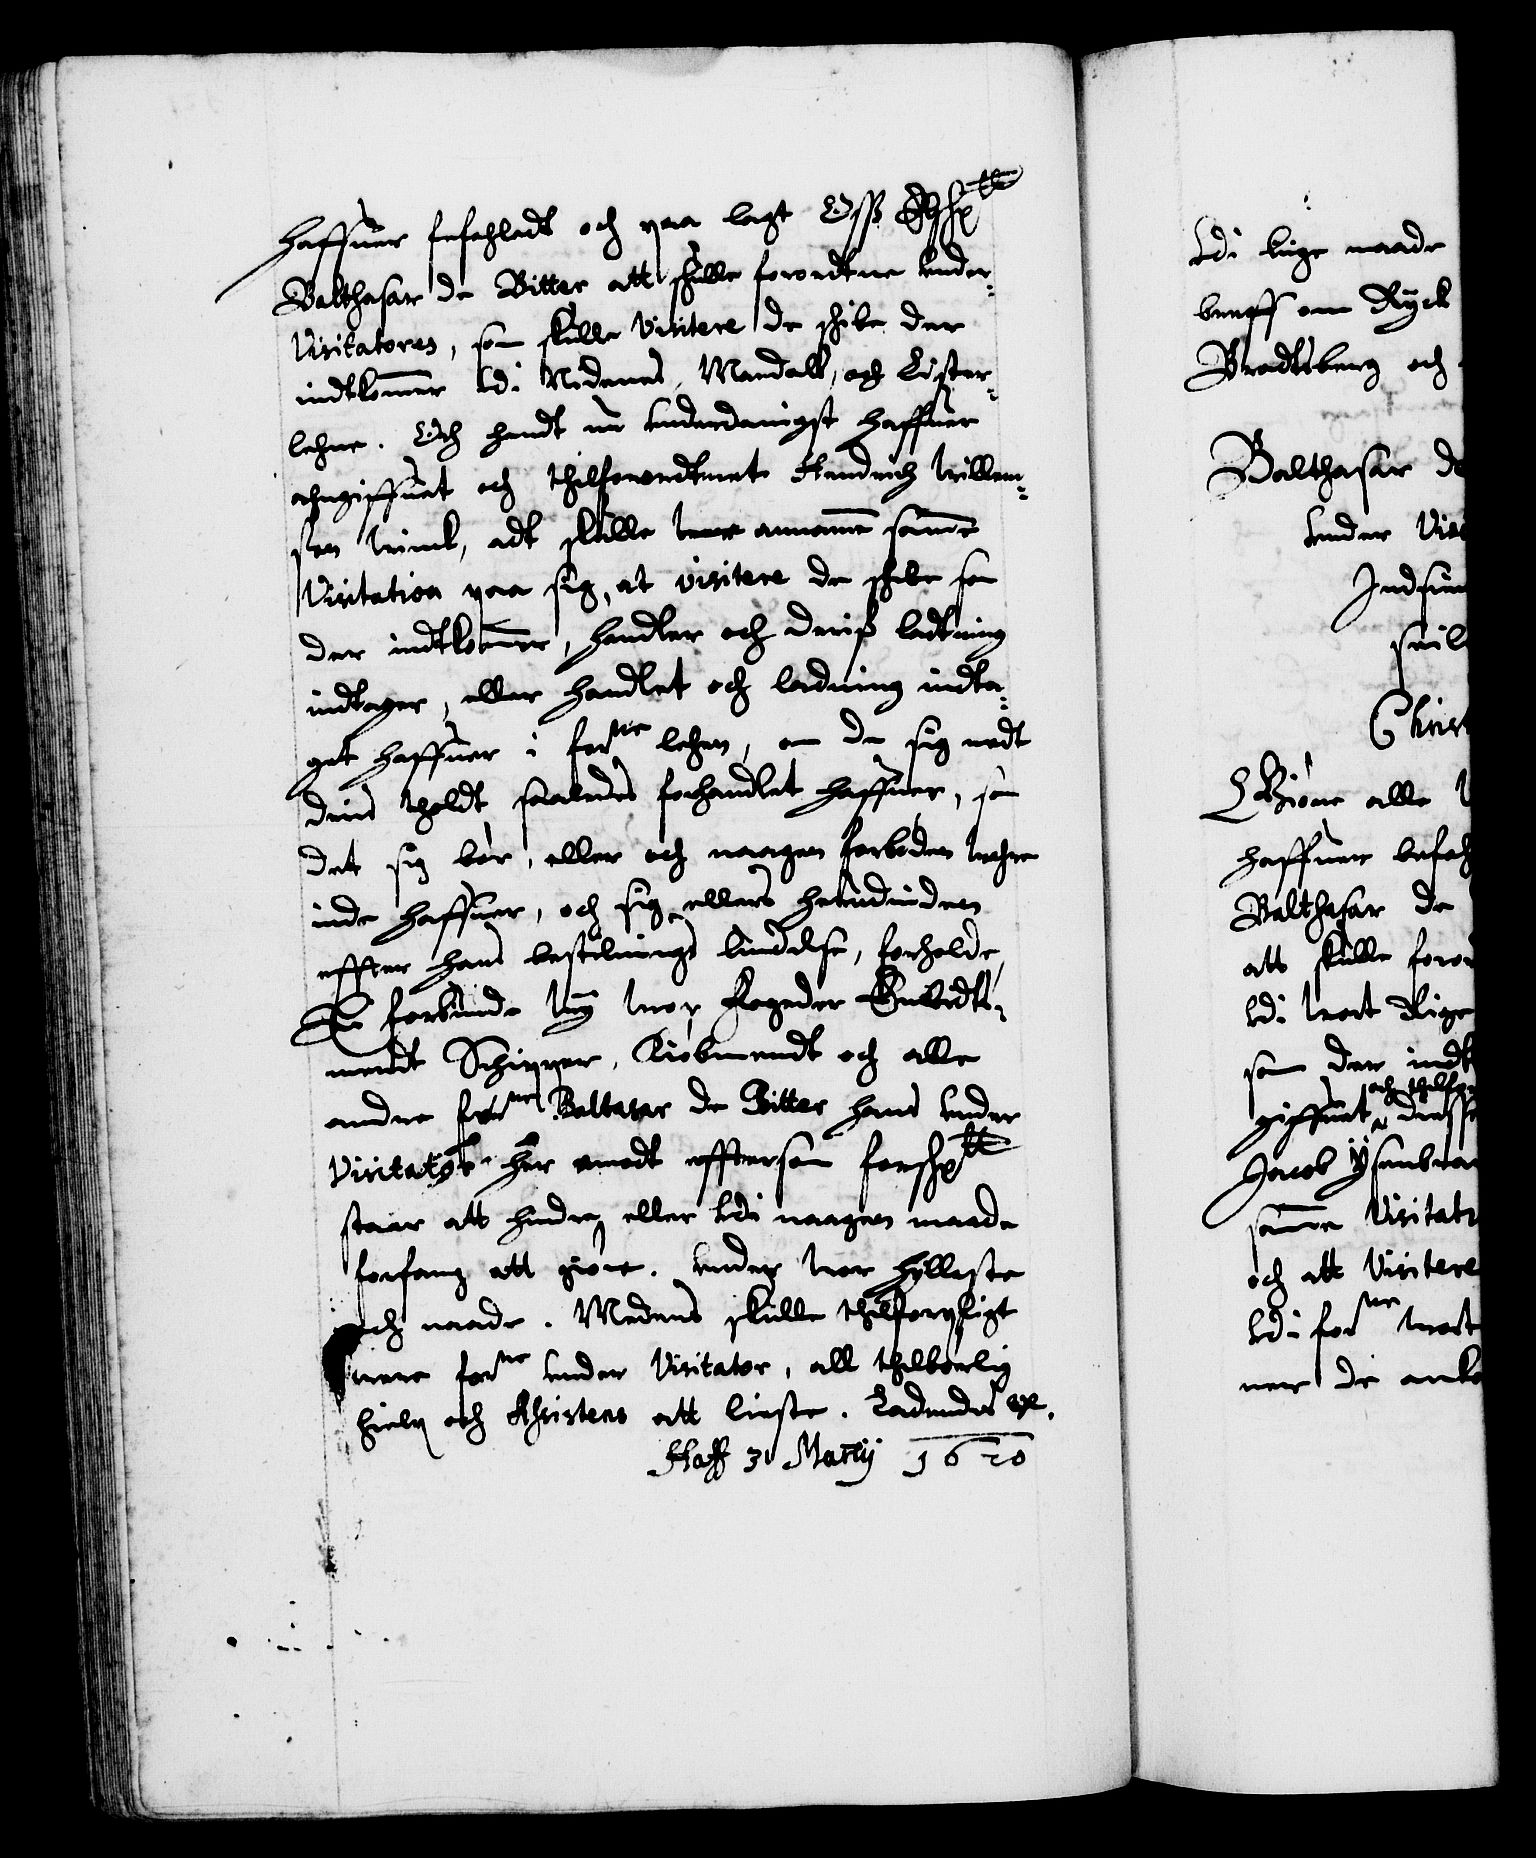 haffuer befehledt och paa lagt Oss Elsk:
Balthasar de Bitter att skulle forordtne under-
Visitatores, som skulle visitere de skibe der
indtkommer udi Nedenes, Mandals, och Lister-
lehne. Och handt nu underdanigst haffuer
ahngiffuet och thilforordtnet Hendrich Willem-
sen Winck, adt skulle were annamme samme
Visitation paa sig, at visitere de skibe som
der indtkommer, handler och deris ladtning
indtager, eller handlet och ladning indta-
get haffuer i forne lehen, om de sig med
deris tholdt saaledes forhandlet haffuer, som
det sig bør, eller och naagen forboden wahre
inde haffuer, och sig ellers herudinden
effter hans bestelnings liudelse, forholde,
Thi forbiude wy wore Fogeder Embedts-
mendt Schipper, Kiøbmendt och alle
andre forne Baltasar de Bitter hans under
Visitator her emodt effttersom forskt
staar att hindre eller udi naagen maade
forfang att giøre. under wor hylleste
och naade. Medens skulle thilforpligt
were forne under Visitator, all thilbørlig
hielp och Assistens att lieste. Ladendes etc.
Haff 31 Martij 1620
Udi liige maade
breff om Ryck
Bradtsberg och
Balthasar de
under Visi
Chris
Giøre alle
haffuer befeh
Balthasar de
att skulle foror
udi wort Rige
som der indk
och thilfor
giffuet
Jacob Ysenbra
samme Visitati
och att Visitere
udi forne wort
ner de anko